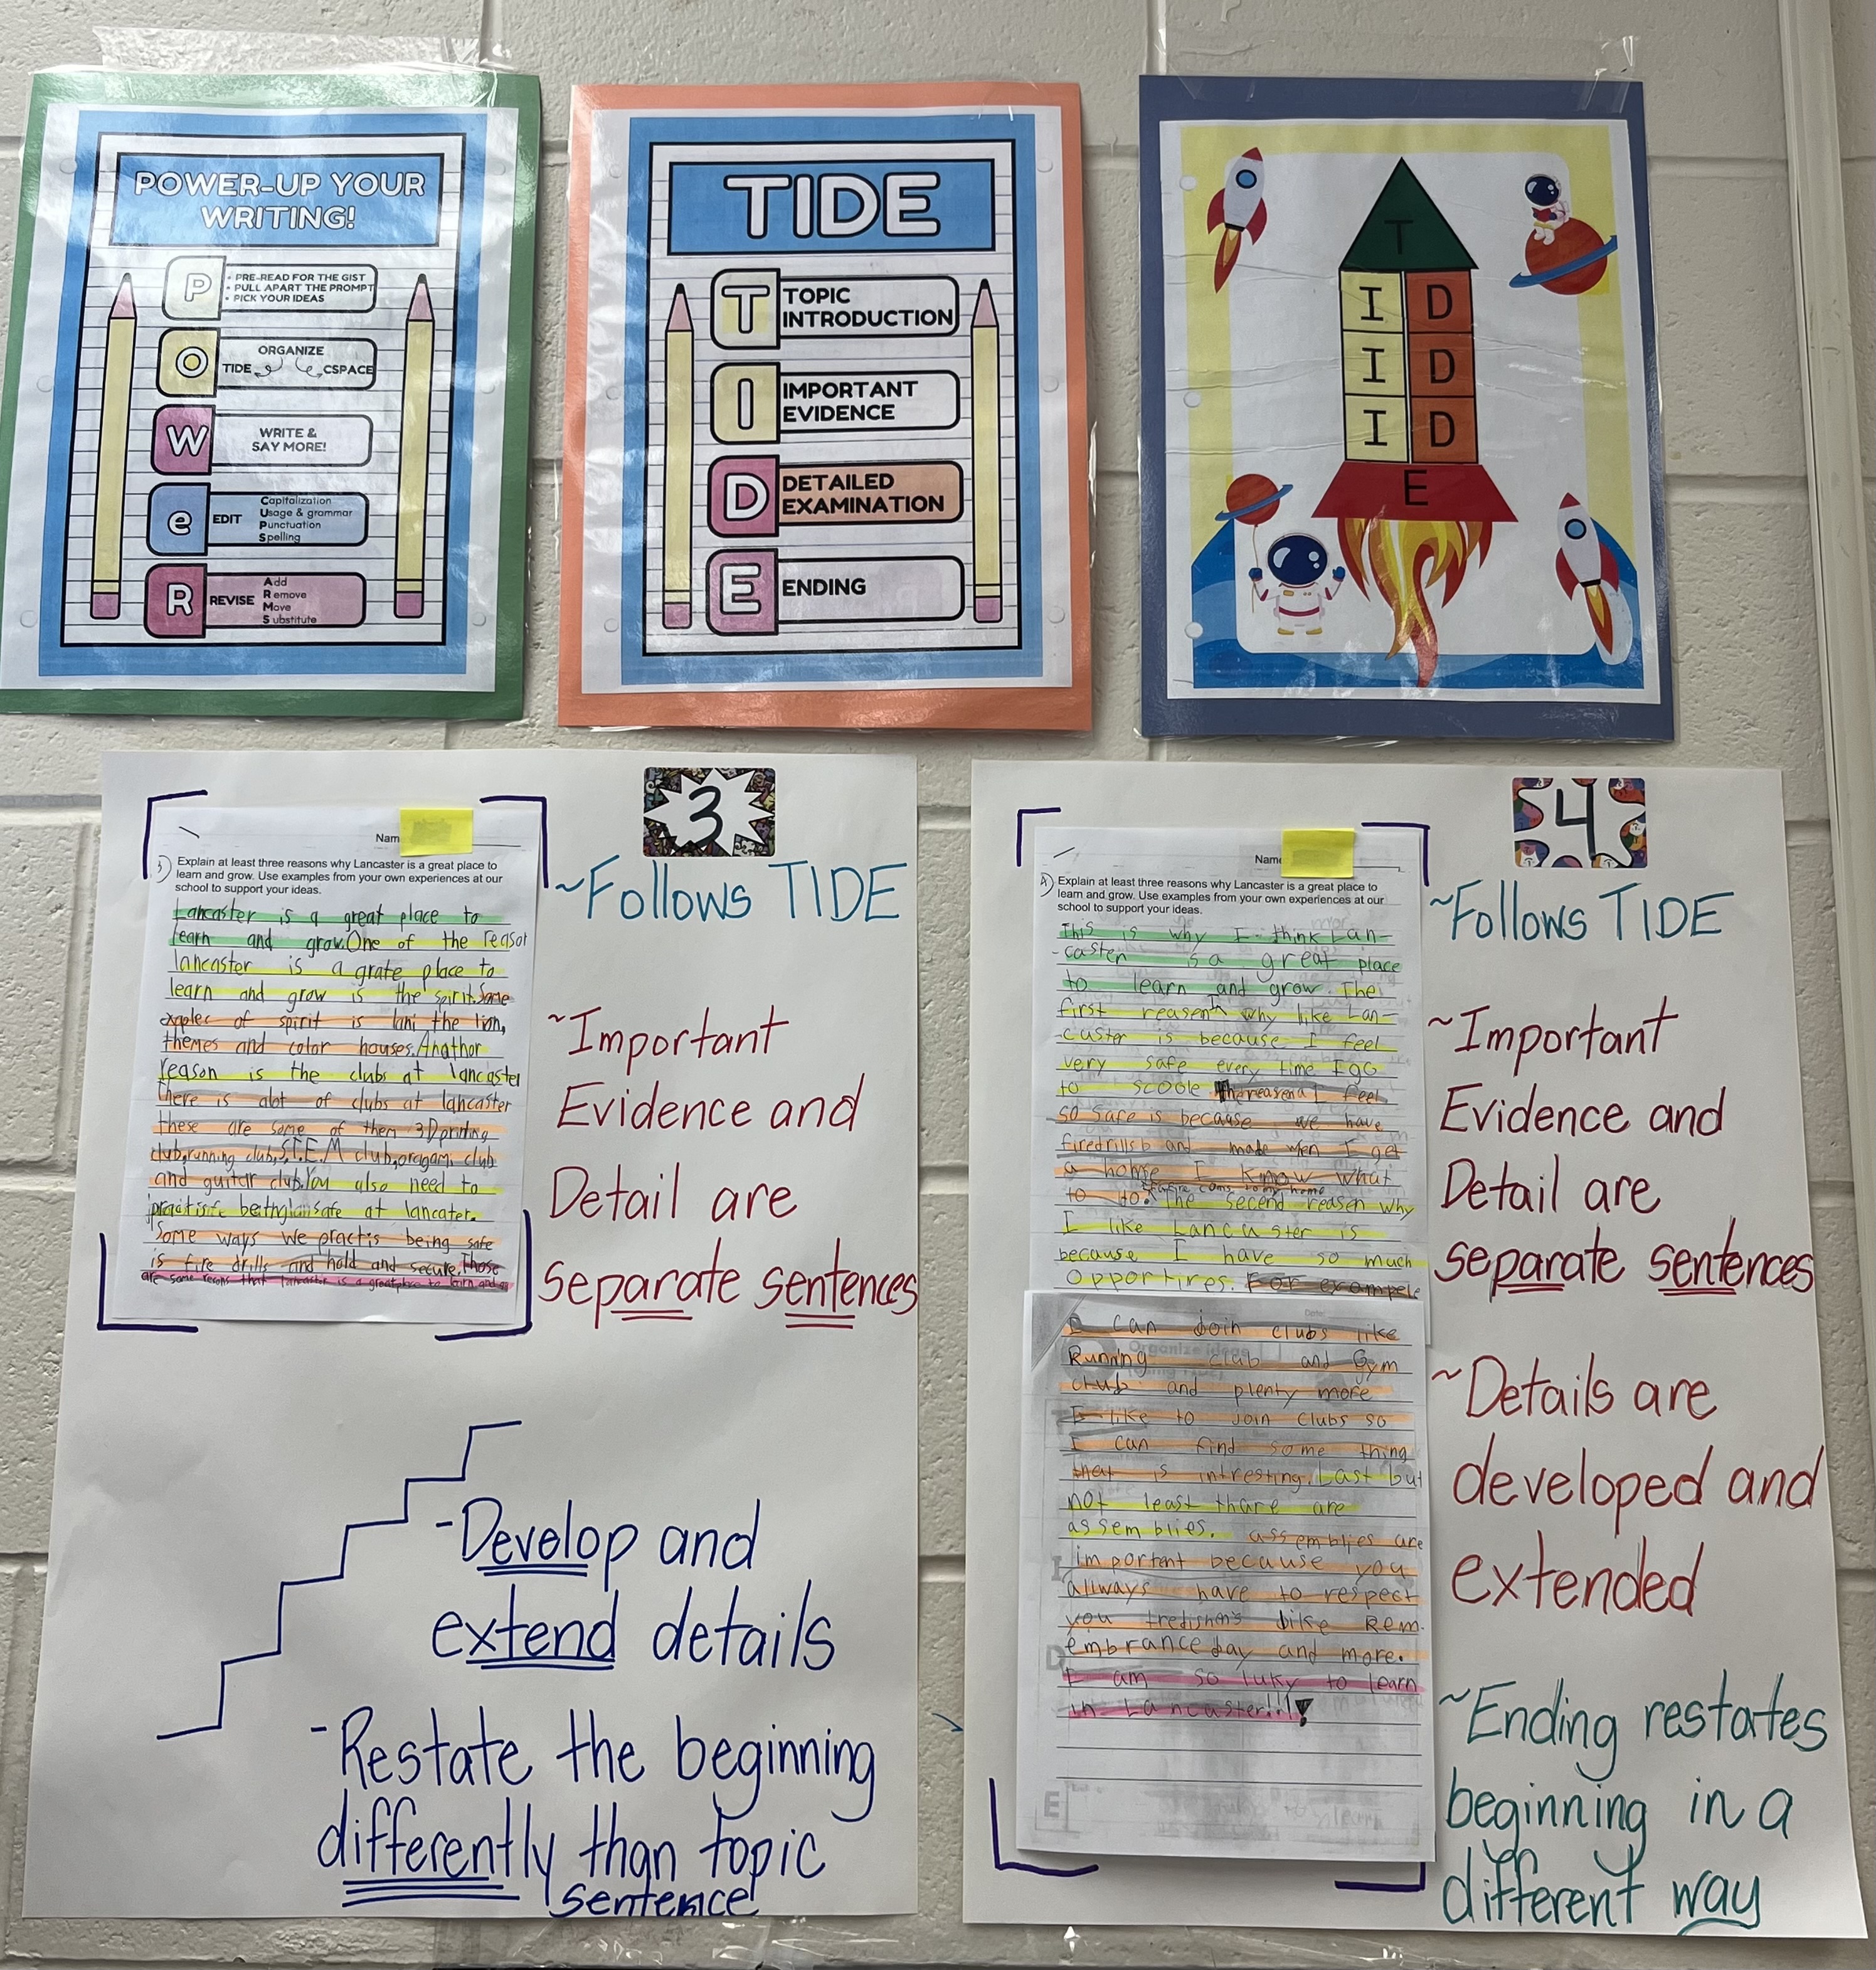 POWER-UP YOUR
WRITING!
P
• PRE-READ FOR THE GIST
• PULL APART THE PROMPT
• PICK YOUR IDEAS
O
ORGANIZE
TIDE CSPACE
W
WRITE &
SAY MORE!
e
EDIT
Capitalization
Usage & grammar
Punctuation
Spelling
R
REVISE
Add
Remove
Move
Substitute
TIDE
T
TOPIC
INTRODUCTION
I
IMPORTANT
EVIDENCE
D
DETAILED
EXAMINATION
E
ENDING
T
I D
I D
I D
E
3
Nam
3) Explain at least three reasons why Lancaster is a great place to
learn and grow. Use examples from your own experiences at our
school to support your ideas.
Lancaster is a great place to
learn and grow. One of the reason
lancaster is a grate place to
learn and grow is the spirit. Some
of spirit is lani the lion,
themes and color houses. Anathor
reason is the clubs at lancaster
there is alot of clubs at lancaster
these are some of them 3D printing
club, running club, S.T.E.M club, oragami club
and guitar club. You also need to
safe at lancater.
Some ways we practis being safe
is fire drills and hold and secure. Those
are some resons that lancaster is a great place to learn and
~Follows TIDE
~Important
Evidence and
Detail are
separate sentences
-Develop and
extend details
-Restate the beginning
differently than topic
sentence
4
Name
4) Explain at least three reasons why Lancaster is a great place to
learn and grow. Use examples from your own experiences at our
school to support your ideas.
This is why I think Lan-
-caster is a great place
to learn and grow. The
first reasen why I like Lan-
-custer is because I feel
very safe every time I go
to scoole The reasen I feel
so safe is because we have
firedrills and made when I get
a home I know what
to do. The second reason why
I like Lancuster is
because I have so much
opportires. For exampele
I can join clubs like
Running club and Gym
club and plenty more
I like to join clubs so
I can find some thing
that is intresting. Last but
not least thare are
assemblies. assemblies are
importent because you
allways have to respect
you tredishons like Rem-
embrance day and more.
I am so luky to learn
in Lancaster!!!
E
~Follows TIDE
~Important
Evidence and
Detail are
separate sentences
~Details are
developed and
extended
~Ending restates
beginning in a
different way